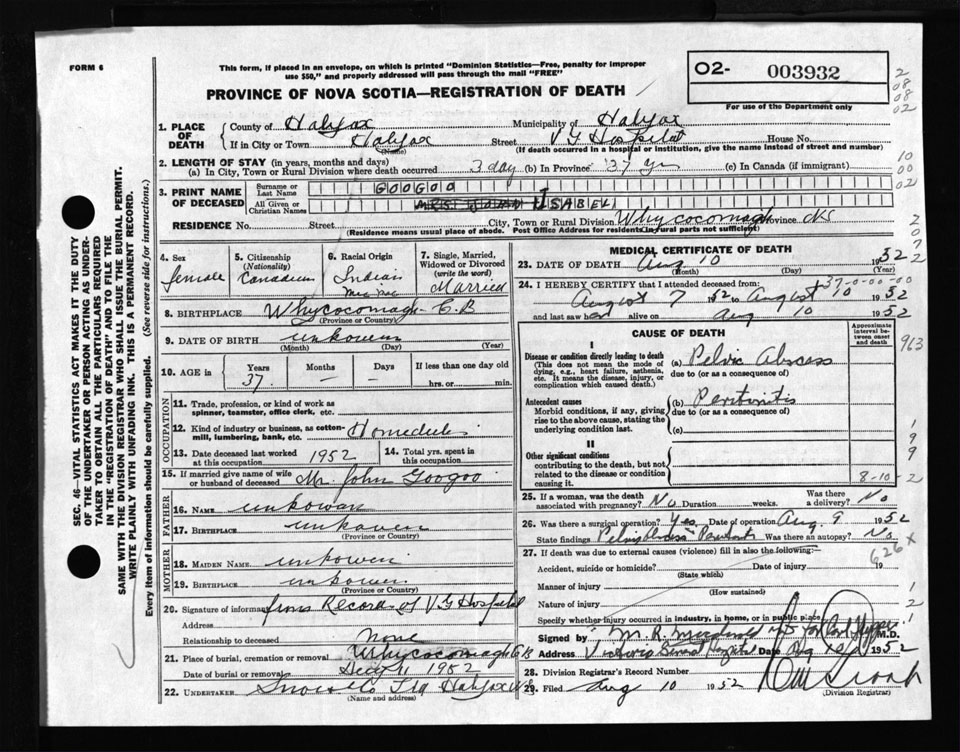 FORM 6
This form, if placed in an envelope, on which is printed "Dominion Statistics—Free, penalty for improper
use $50," and properly addressed will pass through the mail "FREE"
PROVINCE OF NOVA SCOTIA—REGISTRATION OF DEATH
02- 003932
For use of the Department only
2
08
08
02
1. PLACE OF DEATH { County of Halifax Municipality of Halifax
If in City or Town Halifax (Name) Street V G Hospital House No.
(If death occurred in a hospital or institution, give the name instead of street and number)
2. LENGTH OF STAY (in years, months and days)
(a) In City, Town or Rural Division where death occurred 3 day (b) In Province 37 yrs (c) In Canada (if immigrant)
10
00
02
3. PRINT NAME OF DECEASED { Surname or Last Name GOOGOO
All Given or Christian Names MRS JOHN ISABEL
RESIDENCE No. Street City, Town or Rural Division Whycocomagh Province NS
(Residence means usual place of abode. Post Office Address for residents in rural parts not sufficient)
4. Sex female
5. Citizenship (Nationality) Canadian
6. Racial Origin Indian Mic Mac
7. Single, Married, Widowed or Divorced (write the word) Married
8. BIRTHPLACE Whycocomagh C.B
(Province or Country)
9. DATE OF BIRTH unkowen
(Month) (Day) (Year)
10. AGE in { Years 37 Months — Days — If less than one day old
hrs. or min.
OCCUPATION
11. Trade, profession or kind of work as
spinner, teamster, office clerk, etc.
12. Kind of industry or business, as cotton-
mill, lumbering, bank, etc. Homeduties
13. Date deceased last worked at this occupation 1952 14. Total yrs. spent in this occupation
15. If married give name of wife
or husband of deceased Mr. John Googoo
FATHER
16. Name unkowen
17. Birthplace unkowen
(Province or Country)
MOTHER
18. Maiden Name unkowen
19. Birthplace unkowen
(Province or Country)
20. Signature of informant from Record of V.G Hospital
Address
Relationship to deceased None
21. Place of burial, cremation or removal Whycocomagh CB
Date of burial or removal Aug 11 1952
22. Undertaker Snow Co Ltd Halifax NS
(Name and address)
MEDICAL CERTIFICATE OF DEATH
23. DATE OF DEATH Aug 10 1952
(Month) (Day) (Year)
24. I HEREBY CERTIFY that I attended deceased from: 37-0-00-00
August 7 1952 to August 10 1952
and last saw her alive on Aug 10 1952
CAUSE OF DEATH
Approximate interval between onset and death
I
Disease or condition directly leading to death
(This does not mean the mode of
dying, e.g., heart failure, asthenia,
etc. It means the disease, injury, or
complication which caused death.)
(a) Pelvic Abscess
due to (or as a consequence of)
963
Antecedent causes
Morbid conditions, if any, giving
rise to the above cause, stating the
underlying condition last.
(b) Peritonitis
due to (or as a consequence of)
(c)
II
Other significant conditions
contributing to the death, but not
related to the disease or condition
causing it.
8-10-2
25. If a woman, was the death associated with pregnancy? No Duration weeks. Was there a delivery? No
26. Was there surgical operation? Yes Date of operation Aug 9 1952
State findings Pelvic Abscess Was there an autopsy? No
27. If death was due to external causes (violence) fill in also the following: 626 x
Accident, suicide or homicide? Date of injury 19
(State which)
Manner of injury
(How sustained)
Nature of injury
Specify whether injury occurred in industry, in home, or in public place
Signed by M.D.
Address Victoria General Hospital Date Aug 10 1952
28. Division Registrar's Record Number
29. Filed Aug 10 1952
(Division Registrar)
SEC. 46—VITAL STATISTICS ACT MAKES IT THE DUTY
OF THE UNDERTAKER OR PERSON ACTING AS UNDER-
TAKER TO OBTAIN ALL THE PARTICULARS REQUIRED
IN THE "REGISTRATION OF DEATH" AND TO FILE THE
SAME WITH THE DIVISION REGISTRAR WHO SHALL ISSUE THE BURIAL PERMIT.
WRITE PLAINLY WITH UNFADING INK. THIS IS A PERMANENT RECORD.
Every item of information should be carefully supplied. (See reverse side for instructions.)